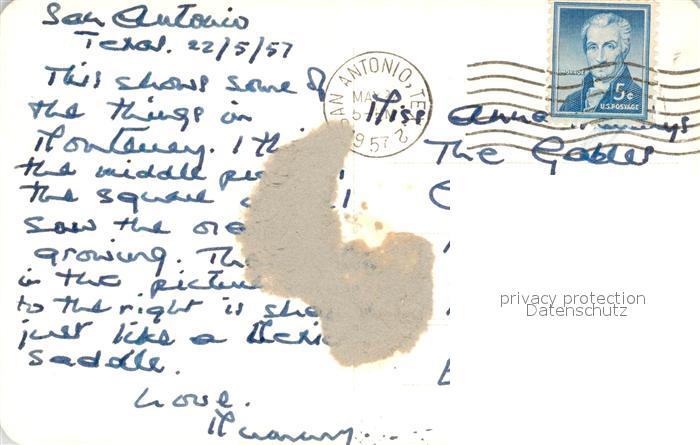 San Antonio
Texas. 22/5/57
This shows some of
the things in
Monterrey. I thi
the middle pi
the square
saw the ora
growing. The
in the pictur
to the right is sha
just like a Mexic
saddle.
Love.
Mummy...
SAN ANTONIO, TE
MAY
5 PM
1957
2
5¢
U.S. POSTAGE
Miss Anna
The Gables
privacy protection
Datenschutz